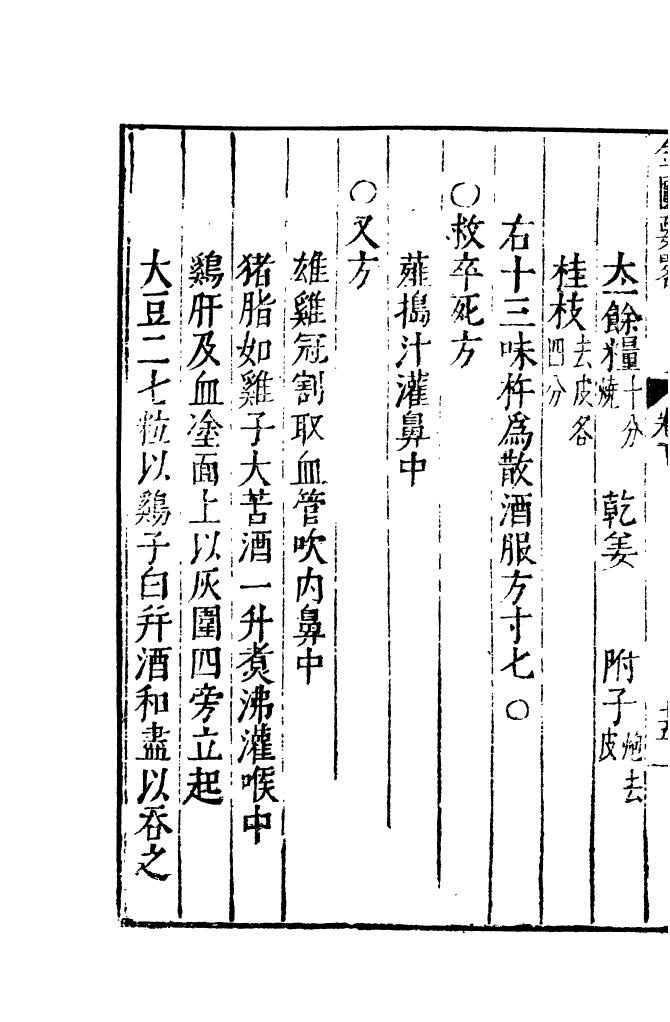 金匱要畧 卷下 十五
太一餘糧十分燒 乾姜 附子炮去皮
桂枝去皮各四分
右十三味杵爲散酒服方寸七○
○救卒死方
薤搗汁灌鼻中
○又方
雄雞冠割取血管吹内鼻中
猪脂如雞子大苦酒一升煮沸灌喉中
鷄肝及血塗面上以灰圍四旁立起
大豆二七粒以鷄子白并酒和盡以吞之